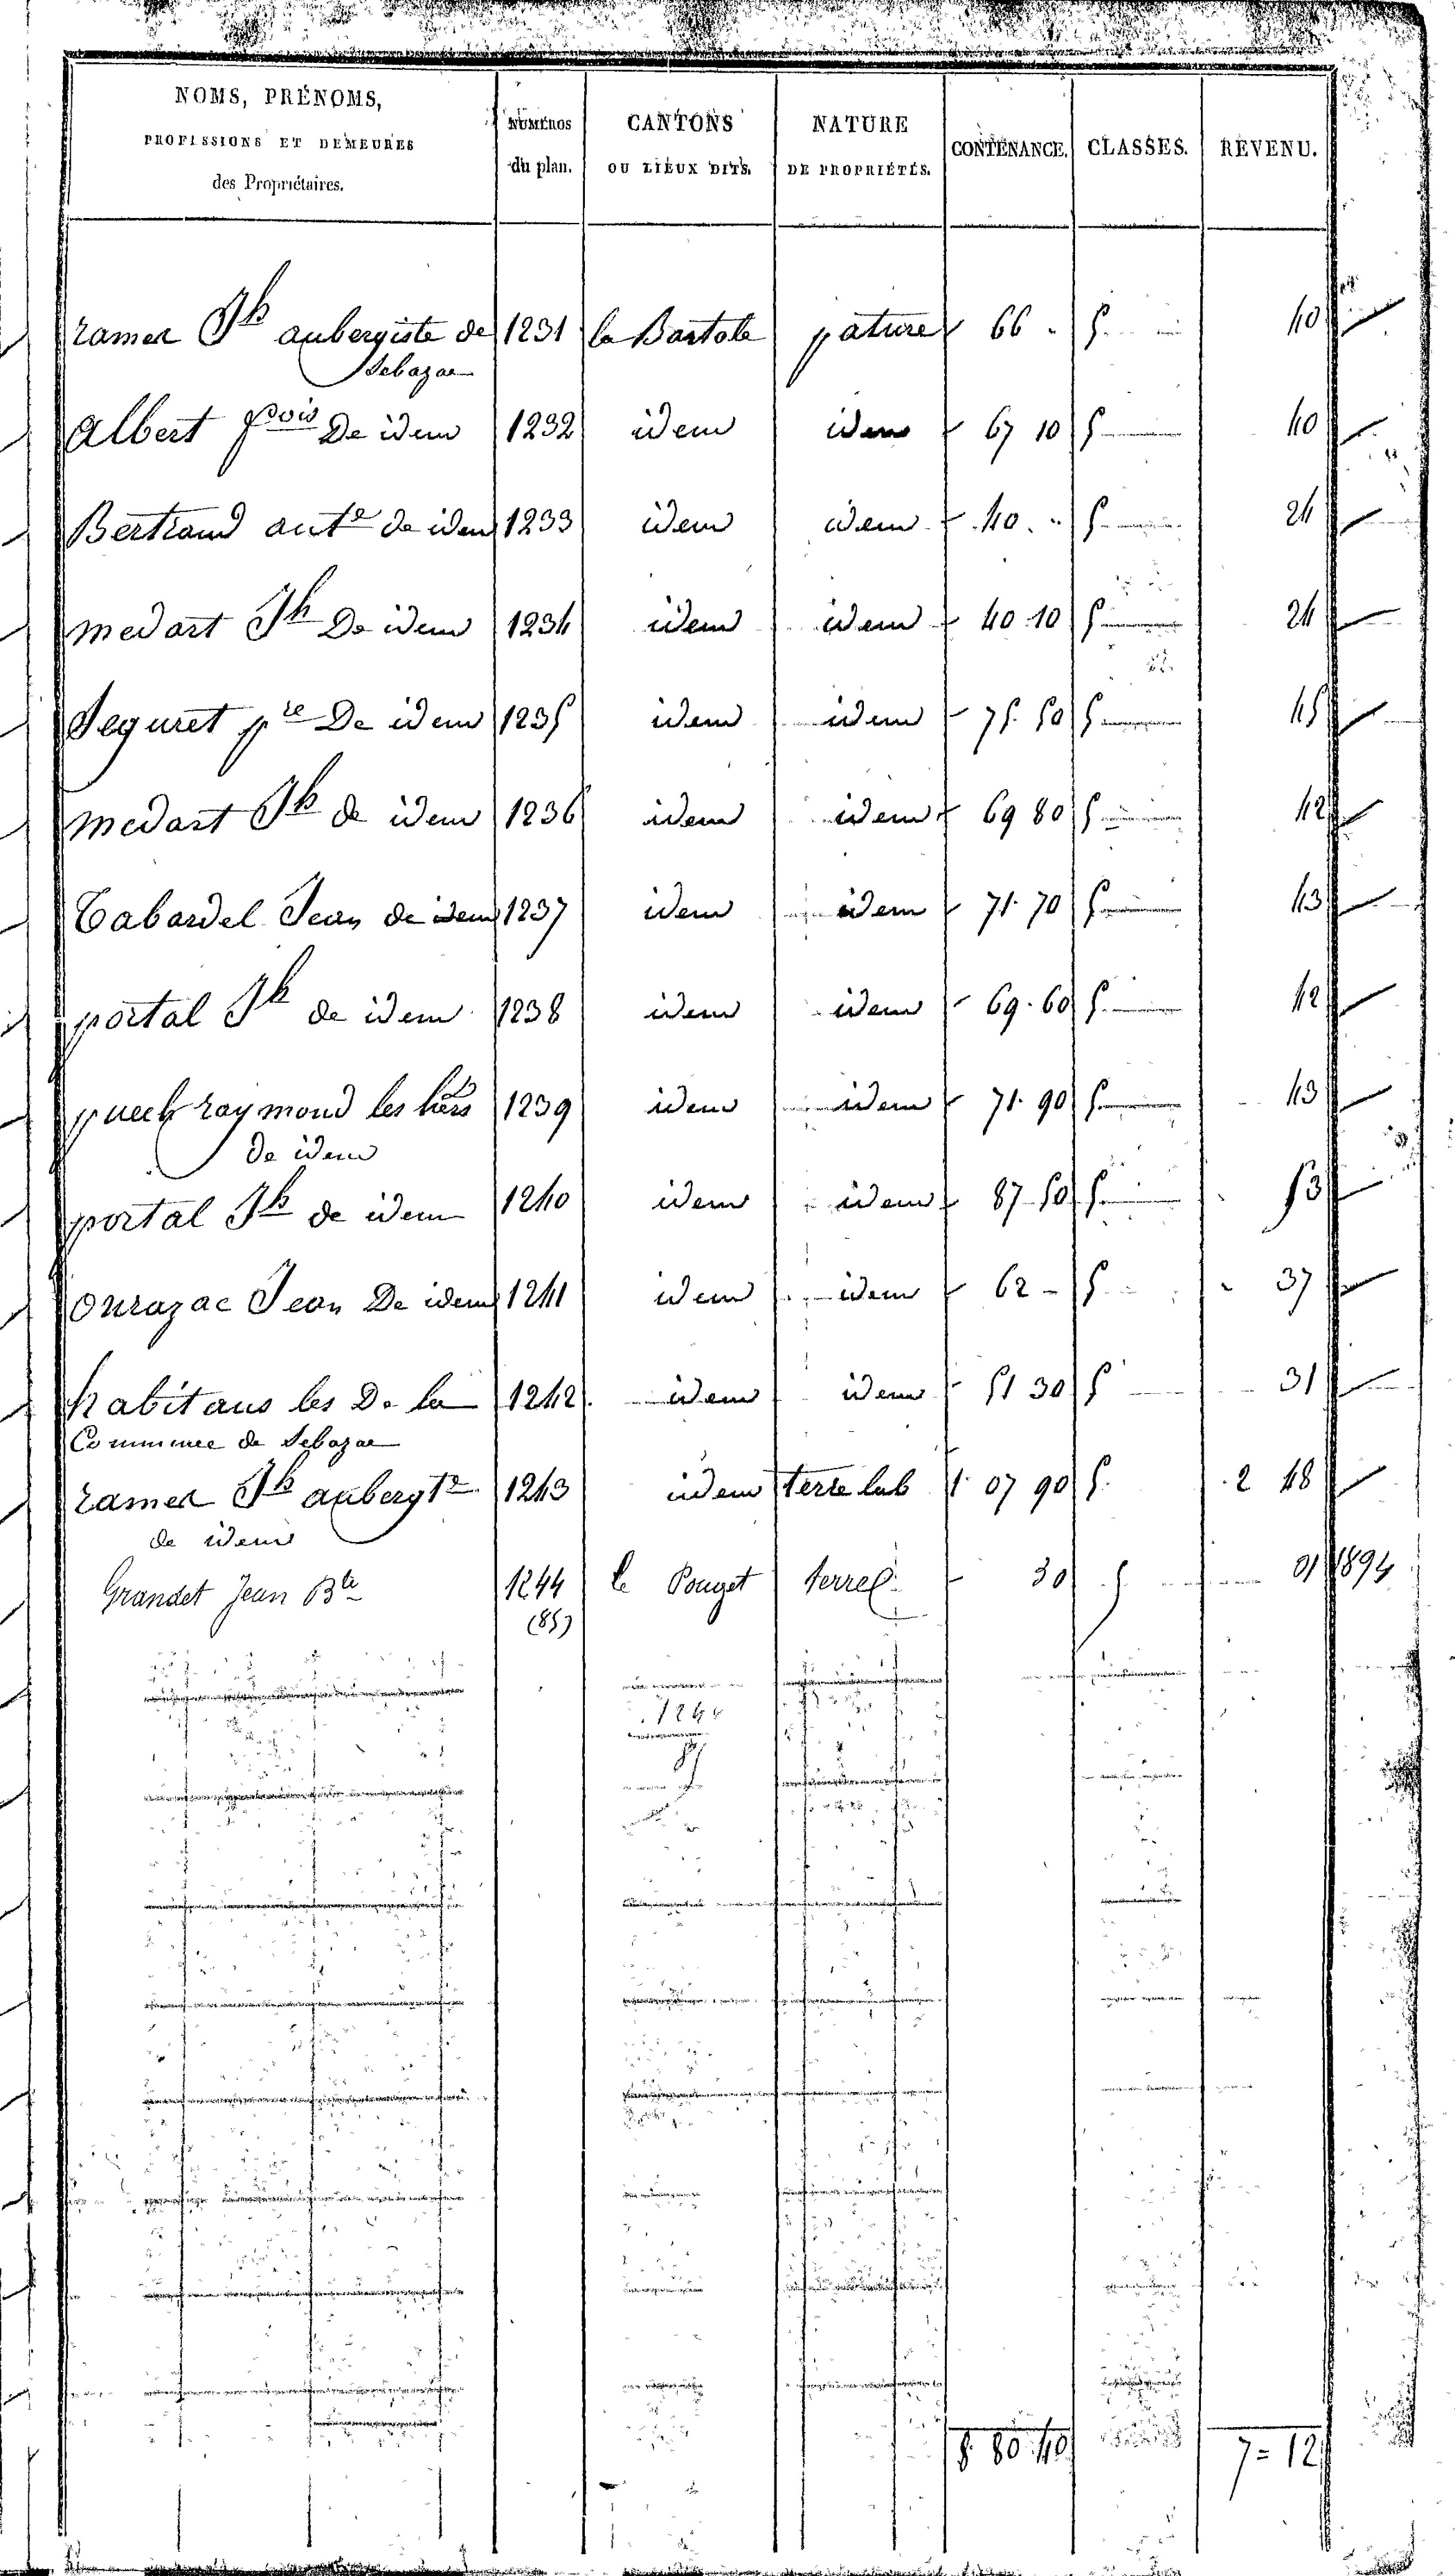 NOMS, PRÉNOMS,
PROFESSIONS ET DEMEURES
des Propriétaires.
NUMÉROS
du plan.
CANTONS
OU LIEUX DITS.
NATURE
DE PROPRIÉTÉS.
CONTENANCE.
CLASSES.
REVENU.
ramer Jh aubergiste de 1231 la Bartote pature 66 5 40
Sebazac
Albert fcois De idem 1232 idem idem 67 10 5 40
Bertrand ante de idem 1233 idem idem 40 5 24
medart Jh De idem 1234 idem idem 40 10 5 24
Seguret pre De idem 1235 idem idem 75 50 5 45
medart Jh de idem 1236 idem idem 69 80 5 42
Tabardel Jean de idem 1237 idem idem 71 70 5 43
portal Jh de idem 1238 idem idem 69 60 5 42
puech raymond les hers 1239 idem idem 71 90 5 43
de idem
portal Jh de idem 1240 idem idem 87 50 5 53
ourazac Jean De idem 1241 idem idem 62 - 5 37
habitans les De la 1242 idem idem 51 30 5 31
Commune de Sebazac
ramer Jh aubergte 1243 idem terre lab 1 07 90 5 2 48
de idem
Grandet Jean Bte 1244 le Pouget terre 30 5 01 1894
(85)
124
8 80 40 7 = 12